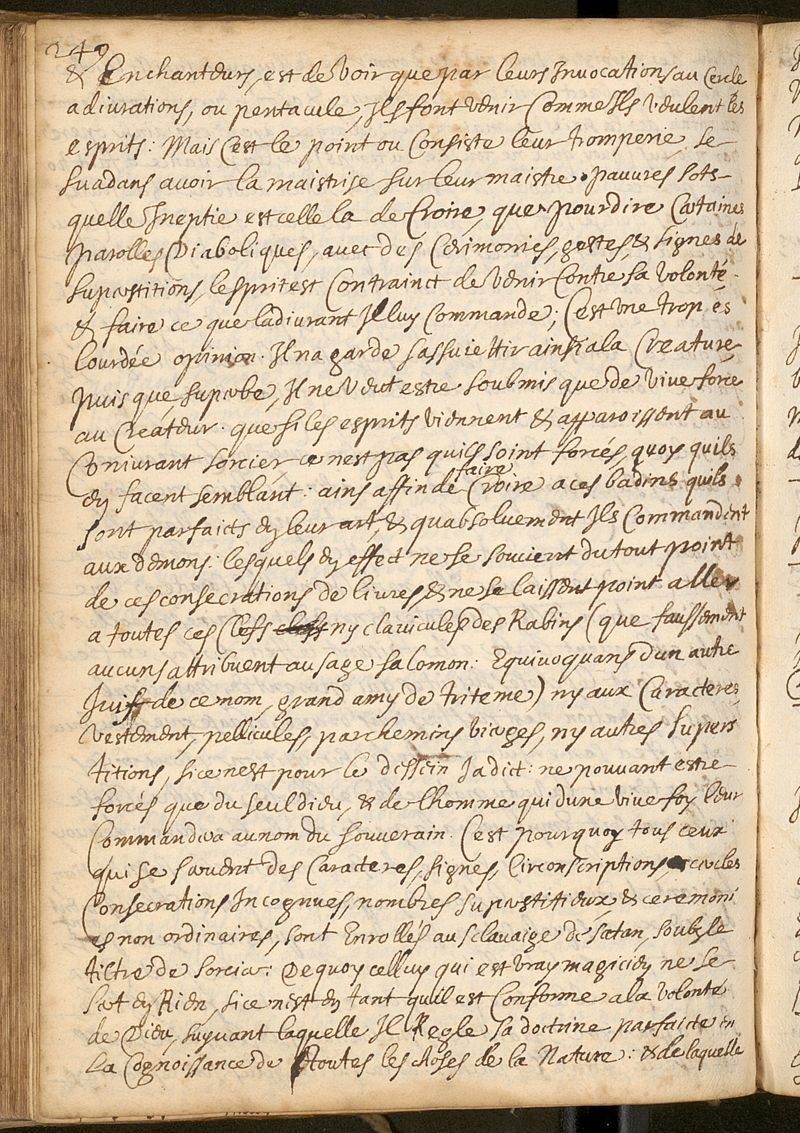 249
& Enchanteurs, est de Voir que par leurs Invocations au Cercle
adiurations, ou pentacule, Ils font venir Comme Ils veulent les
esprits: Mais C'est le point ou Consiste leur tromperie, se
suadans avoir la maistrise sur leur maistre. pauures sots
quelle Ineptie est celle la de Croire, que pour dire Certaines
parolles Diaboliques, avec des Cerimonies, gestes, & signes de
superstitions, lesprit est Contrainct de venir Contre sa volonté
& faire ce que ladiurant Il luy Commande; C'est une trop es
lourdée opinion. Il na garde sassuiettir ainsi a la Creature,
puis que superbe, Il ne veut estre soubmis que de vive force
au Createur. que si les esprits viennent & apparoissent au
Coniurant sorcier, ce nest pas quils soint forcés, quoy quils
en facent semblant: ains affin de faire Croire a ces badins quils
sont parfaicts en leur art, & quabsoluement Ils Commandent
aux demons: lesquels en effect ne se soucient du tout point
de ces consecrations de livres, & ne se laissent point aller
a toutes ces Clefs ny clavicules des Rabins (que faussement
aucuns attribuent au sage salomon: Equivoquans d'un autre
Juif de ce nom, grand amy de triteme) ny aux Caracteres,
vestement, pellicules, parchemins vierges, ny autres supers
titions, si ce nest pour le dessein Jadict: ne pouvant estre
forcés que du seul dieu, & de lhomme qui dune vive foy leur
Commandera au nom du souverain. C'est pourquoy tous ceux
qui se servent des Caracteres, signes, Circonscriptions, cercles
Consecrations Incognues, nombres superstitieux, & ceremoni
es non ordinaires, sont Enrollés au sclavaige de satan, soubz le
tiltre de sorcier: De quoy celluy qui est vray magicien ne se
sert en Rien, si ce nest en tant quil est Conforme a la volonté
de Dieu, suyvant laquelle Il Regle sa doctrine parfaicte en
La Cognoissance de toutes les choses de la Nature: & de laquelle